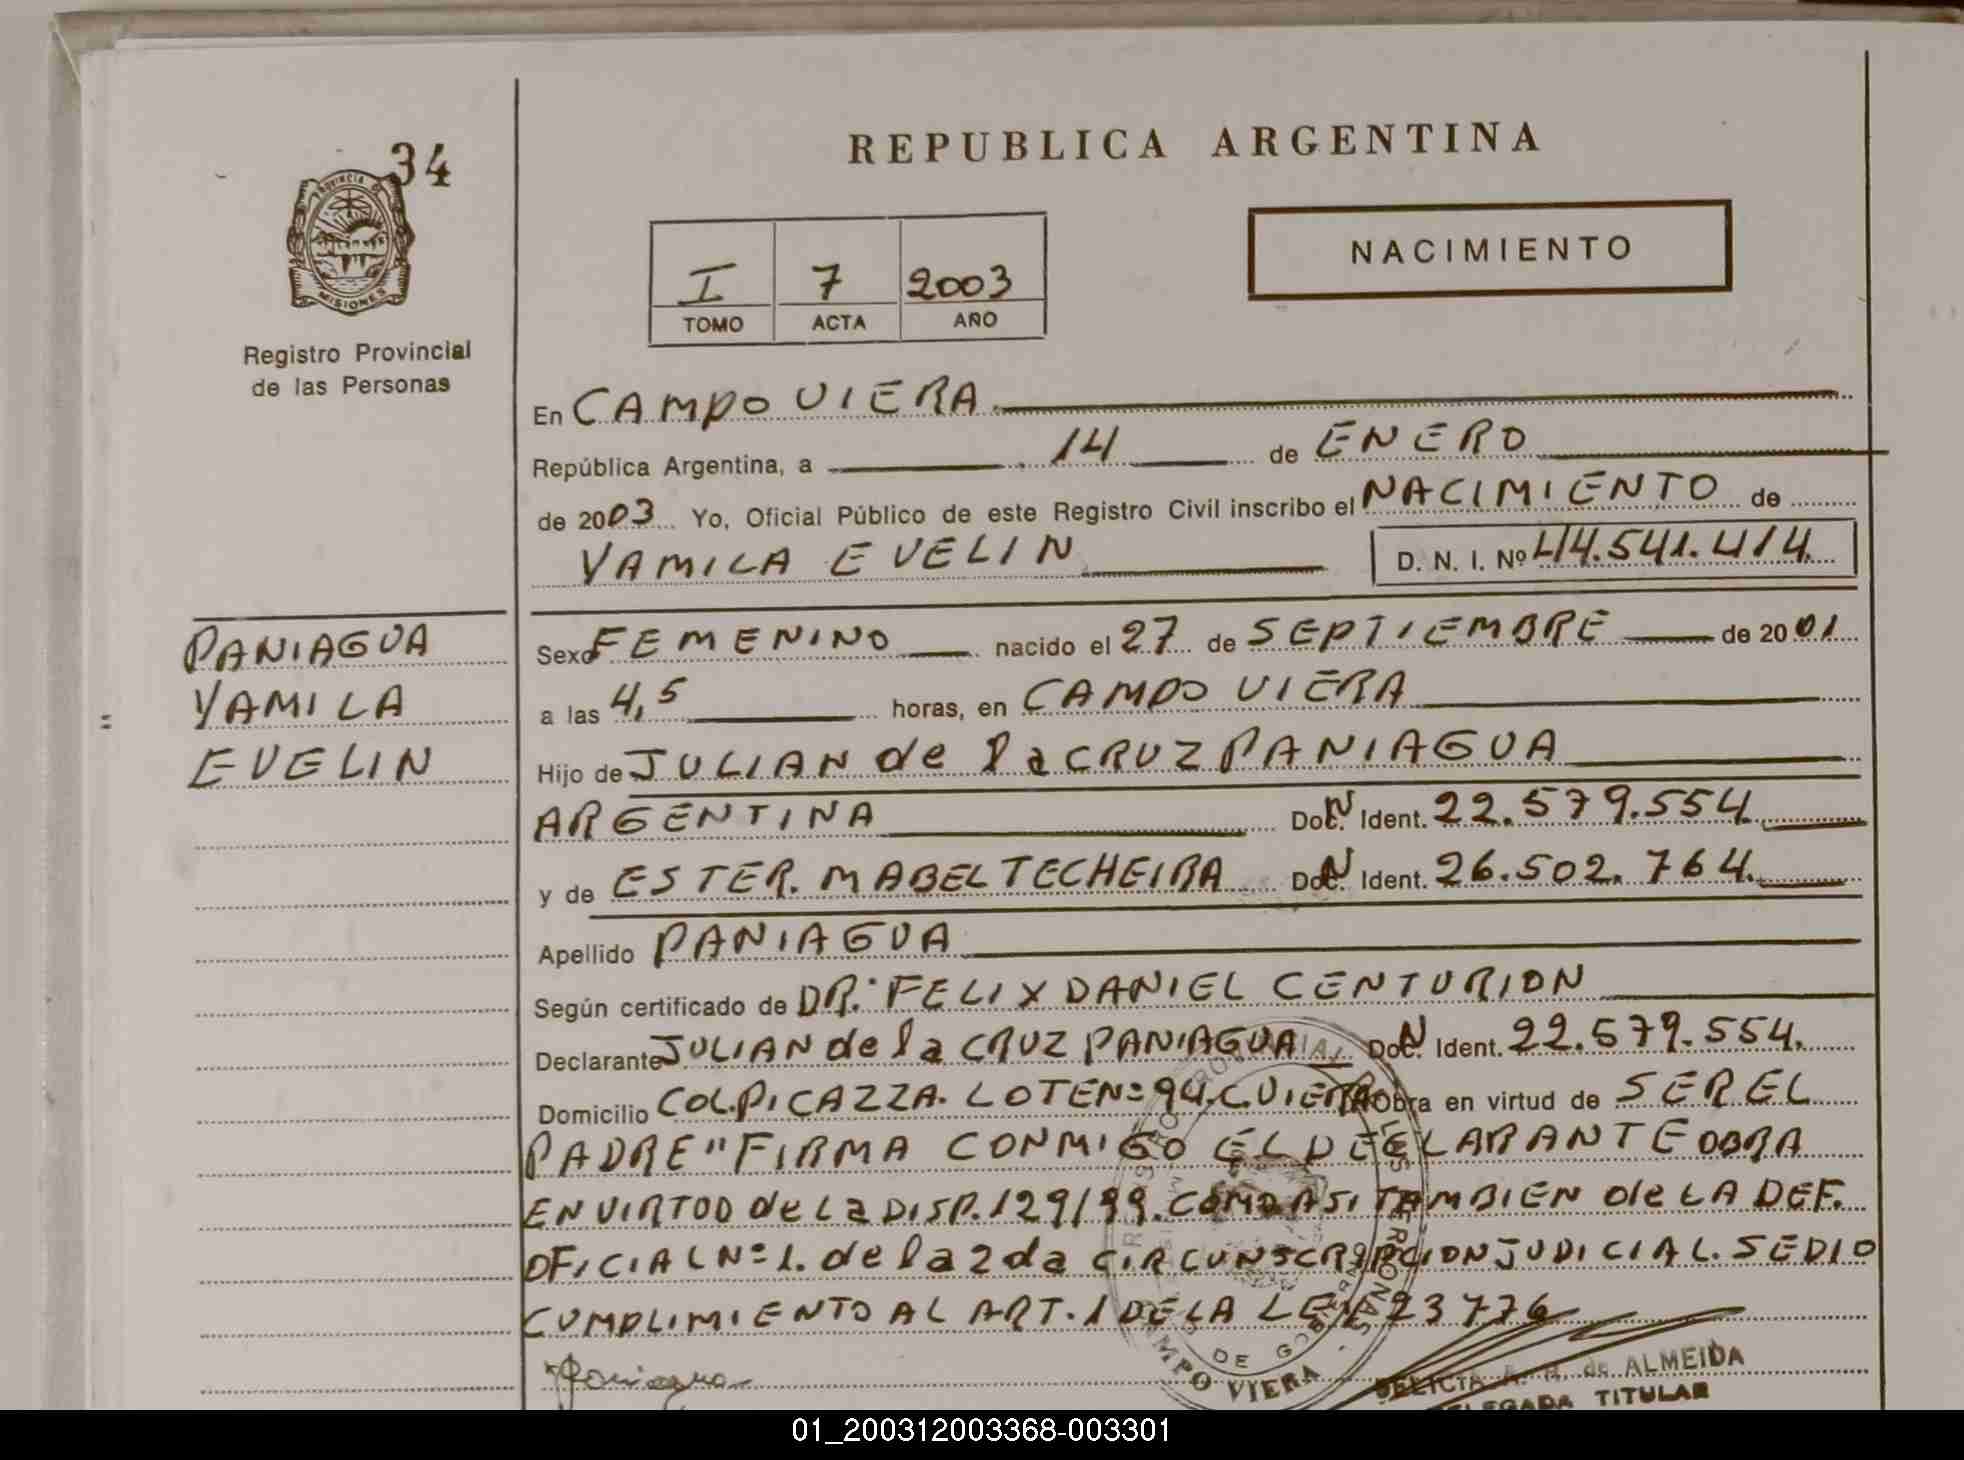 34
PROVINCIA DE
MISIONES
Registro Provincial
de las Personas
REPUBLICA ARGENTINA
NACIMIENTO
I 7 2003
TOMO ACTA AÑO
En CAMPO VIERA
República Argentina, a 14 de ENERO
de 2003 Yo, Oficial Público de este Registro Civil inscribo el NACIMIENTO de
YAMILA EVELIN D. N. I. Nº 44.541.414.
PANIAGUA
YAMILA
EVELIN
Sexo FEMENINO nacido el 27 de SEPTIEMBRE de 2001
a las 4,5 horas, en CAMPO VIERA
Hijo de JULIAN de la CRUZ PANIAGUA
ARGENTINA Doc. N Ident. 22.579.554.
y de ESTER. MABEL TECHEIRA Doc. N Ident. 26.502.764.
Apellido PANIAGUA
Según certificado de DR. FELIX DANIEL CENTURION
Declarante JULIAN de la CRUZ PANIAGUA Doc. N Ident. 22.579.554.
Domicilio COL. PICAZZA. LOTE Nº 94. C. VIERA Obra en virtud de SER EL
PADRE" FIRMA CONMIGO EL DECLARANTE OBRA
EN VIRTUD de La DISP. 129/99. COMO ASI TAMBIEN de LA DEF.
OFICIAL Nº 1. de la 2da CIRCUNSCRIPCION JUDICIAL. SE DIO
CUMPLIMIENTO AL ART. 1 DE LA LEY 23776
Paniagua
de ALMEIDA
DELEGADA TITULAR
CAMPO VIERA
01_200312003368-003301